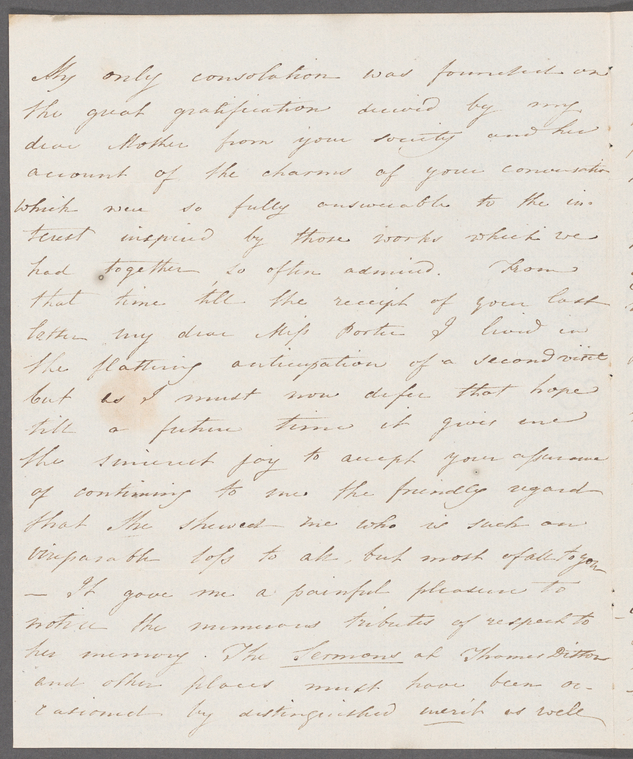 My only consolation was founded on
the great gratification derived by my
dear Mother from your society and her
account of the charms of your conversation
which were so fully answerable to the in-
terest inspired by those works which we
had together so often admired. From
that time till the receipt of your last
letter my dear Miss Porter I lived in
the flattering anticipation of a second visit
but as I must now defer that hope
till a future time it gives me
the sincerest joy to accept your assurance
of continuing to me the friendly regard
that she shewed me who is such an
irreparable loss to all but most of all to you
— It gave me a painful pleasure to
notice the numerous tributes of respect to
her memory. The Sermons at Thames Ditton
and other places must have been oc-
casioned by distinguished merit as well